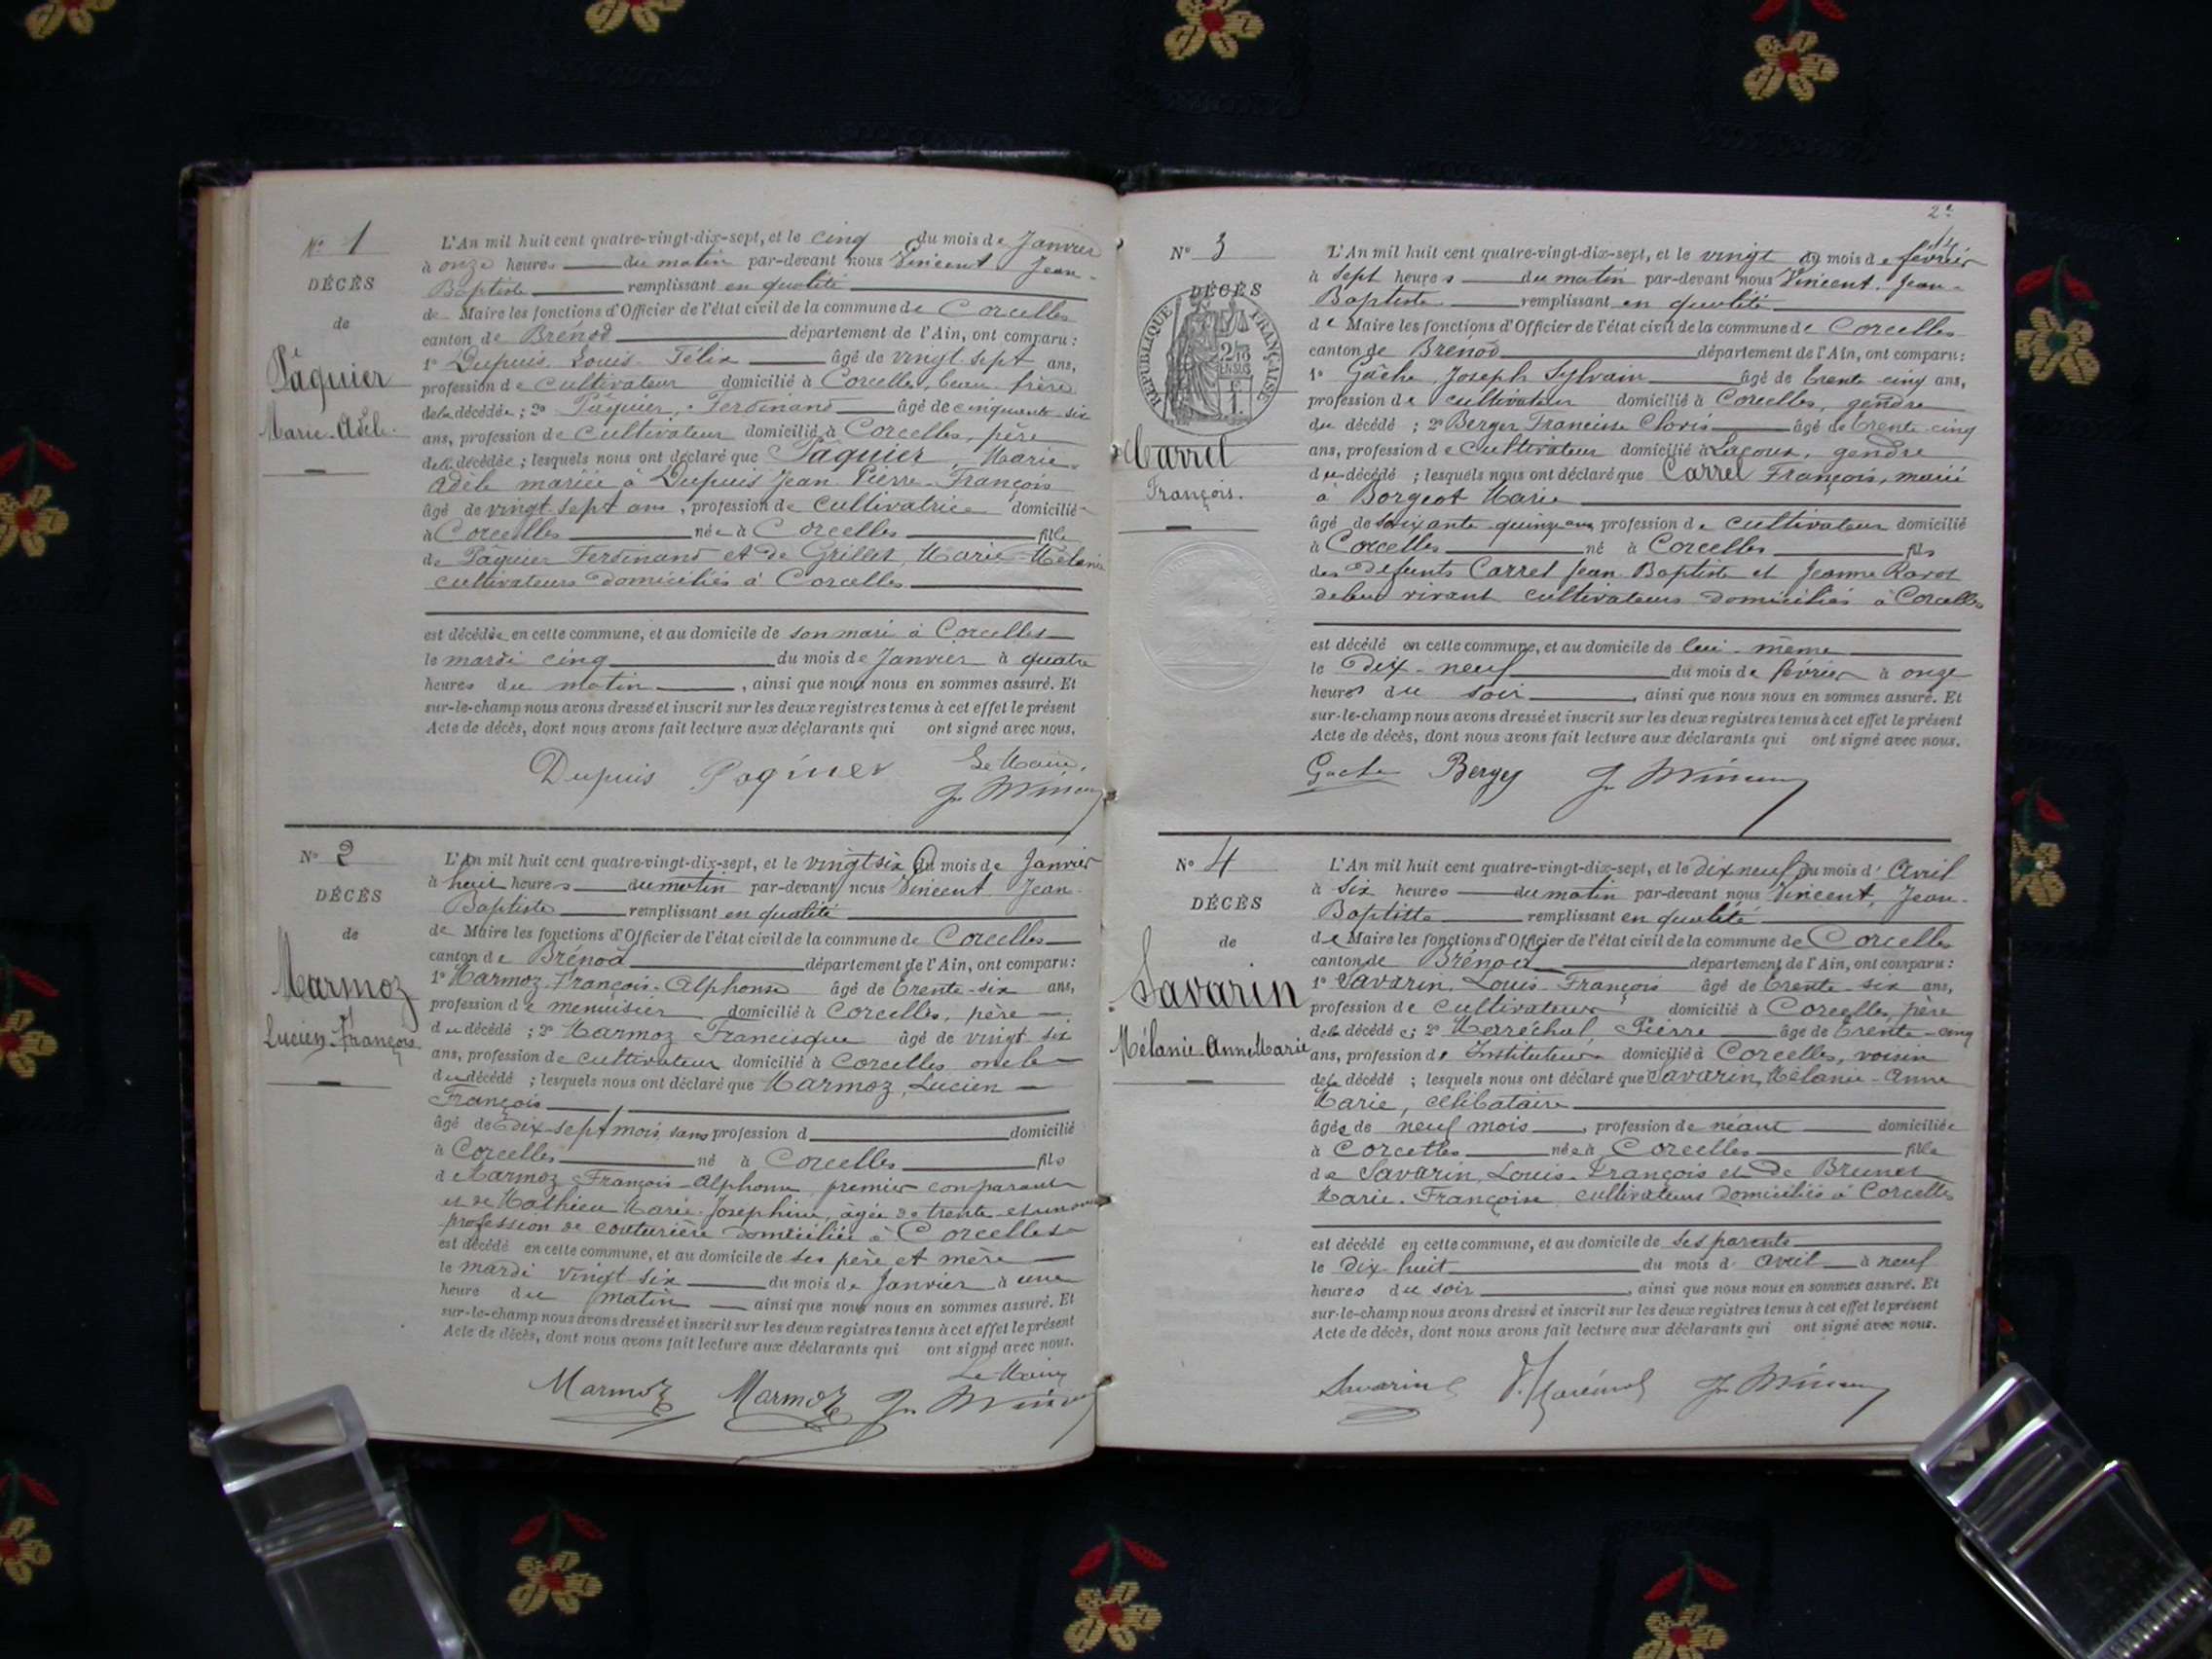 N° 1
DÉCÈS
de
Pâquier
Marie-Adèle.
L'An mil huit cent quatre-vingt-dix-sept, et le cinq du mois de Janvier
à onze heures du matin par-devant nous Vincent Jean-
Baptiste remplissant en qualité
de Maire les fonctions d'Officier de l'état civil de la commune de Corcelles
canton de Brénod département de l'Ain, ont comparu :
1° Dupuis Louis Félix âgé de vingt sept ans,
profession de cultivateur domicilié à Corcelles, beau-frère
de la décédée ; 2° Pâquier, Ferdinand âgé de cinquante-six
ans, profession de cultivateur domicilié à Corcelles, père
de la décédée ; lesquels nous ont déclaré que Pâquier, Marie-
Adèle mariée à Dupuis Jean Pierre-François
âgé de vingt-sept ans, profession de cultivatrice domicilié
à Corcelles née à Corcelles fille
de Pâquier Ferdinand et de Grillet, Marie-Mélanie
cultivateurs domiciliés à Corcelles
est décédée en cette commune, et au domicile de son mari à Corcelles
le mardi cinq du mois de Janvier à quatre
heures du matin, ainsi que nous nous en sommes assuré. Et
sur-le-champ nous avons dressé et inscrit sur les deux registres tenus à cet effet le présent
Acte de décès, dont nous avons fait lecture aux déclarants qui ont signé avec nous.
Le Maire,
Dupuis Paquier Jn Bte Vincent
N° 2
DÉCÈS
de
Marmoz
Lucien-François
L'An mil huit cent quatre-vingt-dix-sept, et le vingt six du mois de Janvier
à huit heures du matin par-devant nous Vincent Jean-
Baptiste remplissant en qualité
de Maire les fonctions d'Officier de l'état civil de la commune de Corcelles
canton de Brénod département de l'Ain, ont comparu :
1° Marmoz François-Alphonse âgé de trente-six ans,
profession de menuisier domicilié à Corcelles, père
du décédé ; 2° Marmoz Francisque âgé de vingt six
ans, profession de cultivateur domicilié à Corcelles oncle
du décédé ; lesquels nous ont déclaré que Marmoz, Lucien
François
âgé de dix-sept mois, sans profession d domicilié
à Corcelles né à Corcelles fils
de Marmoz François-Alphonse premier comparant
et de Mathieu Marie-Josephine, âgée de trente et un ans
profession de couturière domiciliée à Corcelles
est décédé en cette commune, et au domicile de ses père et mère
le mardi vingt six du mois de Janvier à une
heure du matin ainsi que nous nous en sommes assuré. Et
sur-le-champ nous avons dressé et inscrit sur les deux registres tenus à cet effet le présent
Acte de décès, dont nous avons fait lecture aux déclarants qui ont signé avec nous.
Le Maire
Marmoz Marmoz Jn Bte Vincent
2e
N° 3
DÉCÈS
RÉPUBLIQUE FRANÇAISE
Carrel
François.
L'An mil huit cent quatre-vingt-dix-sept, et le vingt du mois de février
à sept heures du matin par-devant nous Vincent, Jean-
Baptiste remplissant en qualité
de Maire les fonctions d'Officier de l'état civil de la commune de Corcelles
canton de Brénod département de l'Ain, ont comparu :
1° Gâche, Joseph Sylvain âgé de trente-cinq ans,
profession de cultivateur domicilié à Corcelles, gendre
du décédé ; 2° Berger Francisse Clovis âgé de trente-cinq
ans, profession de cultivateur domicilié à Lacoux, gendre
du décédé ; lesquels nous ont déclaré que Carrel François, marié
à Borgeot Marie
âgé de soixante-quinze ans profession de cultivateur domicilié
à Corcelles né à Corcelles fils
des défunts Carrel Jean Baptiste et Jeanne Ravot
de leur vivant cultivateurs domiciliés à Corcelles
est décédé en cette commune, et au domicile de lui-même
le dix-neuf du mois de février à onze
heures du soir, ainsi que nous nous en sommes assuré. Et
sur-le-champ nous avons dressé et inscrit sur les deux registres tenus à cet effet le présent
Acte de décès, dont nous avons fait lecture aux déclarants qui ont signé avec nous.
Gache Berger Jn Bte Vincent
N° 4
DÉCÈS
de
Savarin
Mélanie-Anne Marie
L'An mil huit cent quatre-vingt-dix-sept, et le dix neuf du mois d'Avril
à six heures du matin par-devant nous Vincent, Jean-
Baptiste remplissant en qualité
de Maire les fonctions d'Officier de l'état civil de la commune de Corcelles
canton de Brénod département de l'Ain, ont comparu :
1° Savarin, Louis-François âgé de trente-six ans,
profession de cultivateur domicilié à Corcelles, père
de la décédée ; 2° Merréchal, Pierre âgé de trente-cinq
ans, profession de Instituteur domicilié à Corcelles, voisin
de la décédé ; lesquels nous ont déclaré que Savarin, Mélanie-Anne
Marie, célibataire
âgée de neuf mois, profession de néant domiciliée
à Corcelles née à Corcelles fille
de Savarin, Louis-François et de Brunet
Marie-Françoise cultivateurs domiciliés à Corcelles
est décédé en cette commune, et au domicile de ses parents
le dix-huit du mois d avril à neuf
heures du soir, ainsi que nous nous en sommes assuré. Et
sur-le-champ nous avons dressé et inscrit sur les deux registres tenus à cet effet le présent
Acte de décès, dont nous avons fait lecture aux déclarants qui ont signé avec nous.
Savarin L Jn Bte Vincent